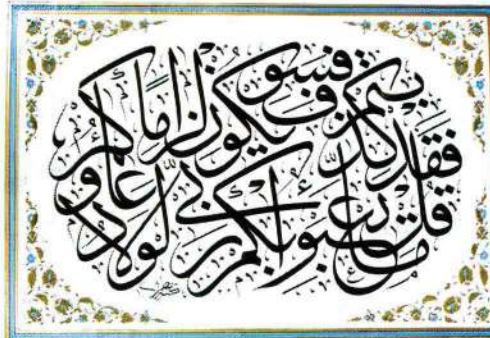 قُلْ مَا يَعْبَؤُا بِكُمْ رَبِّي لَوْلَا دُعَاؤُكُمْ
فَقَدْ كَذَّبْتُمْ فَسَوْفَ يَكُونُ لِزَامًا